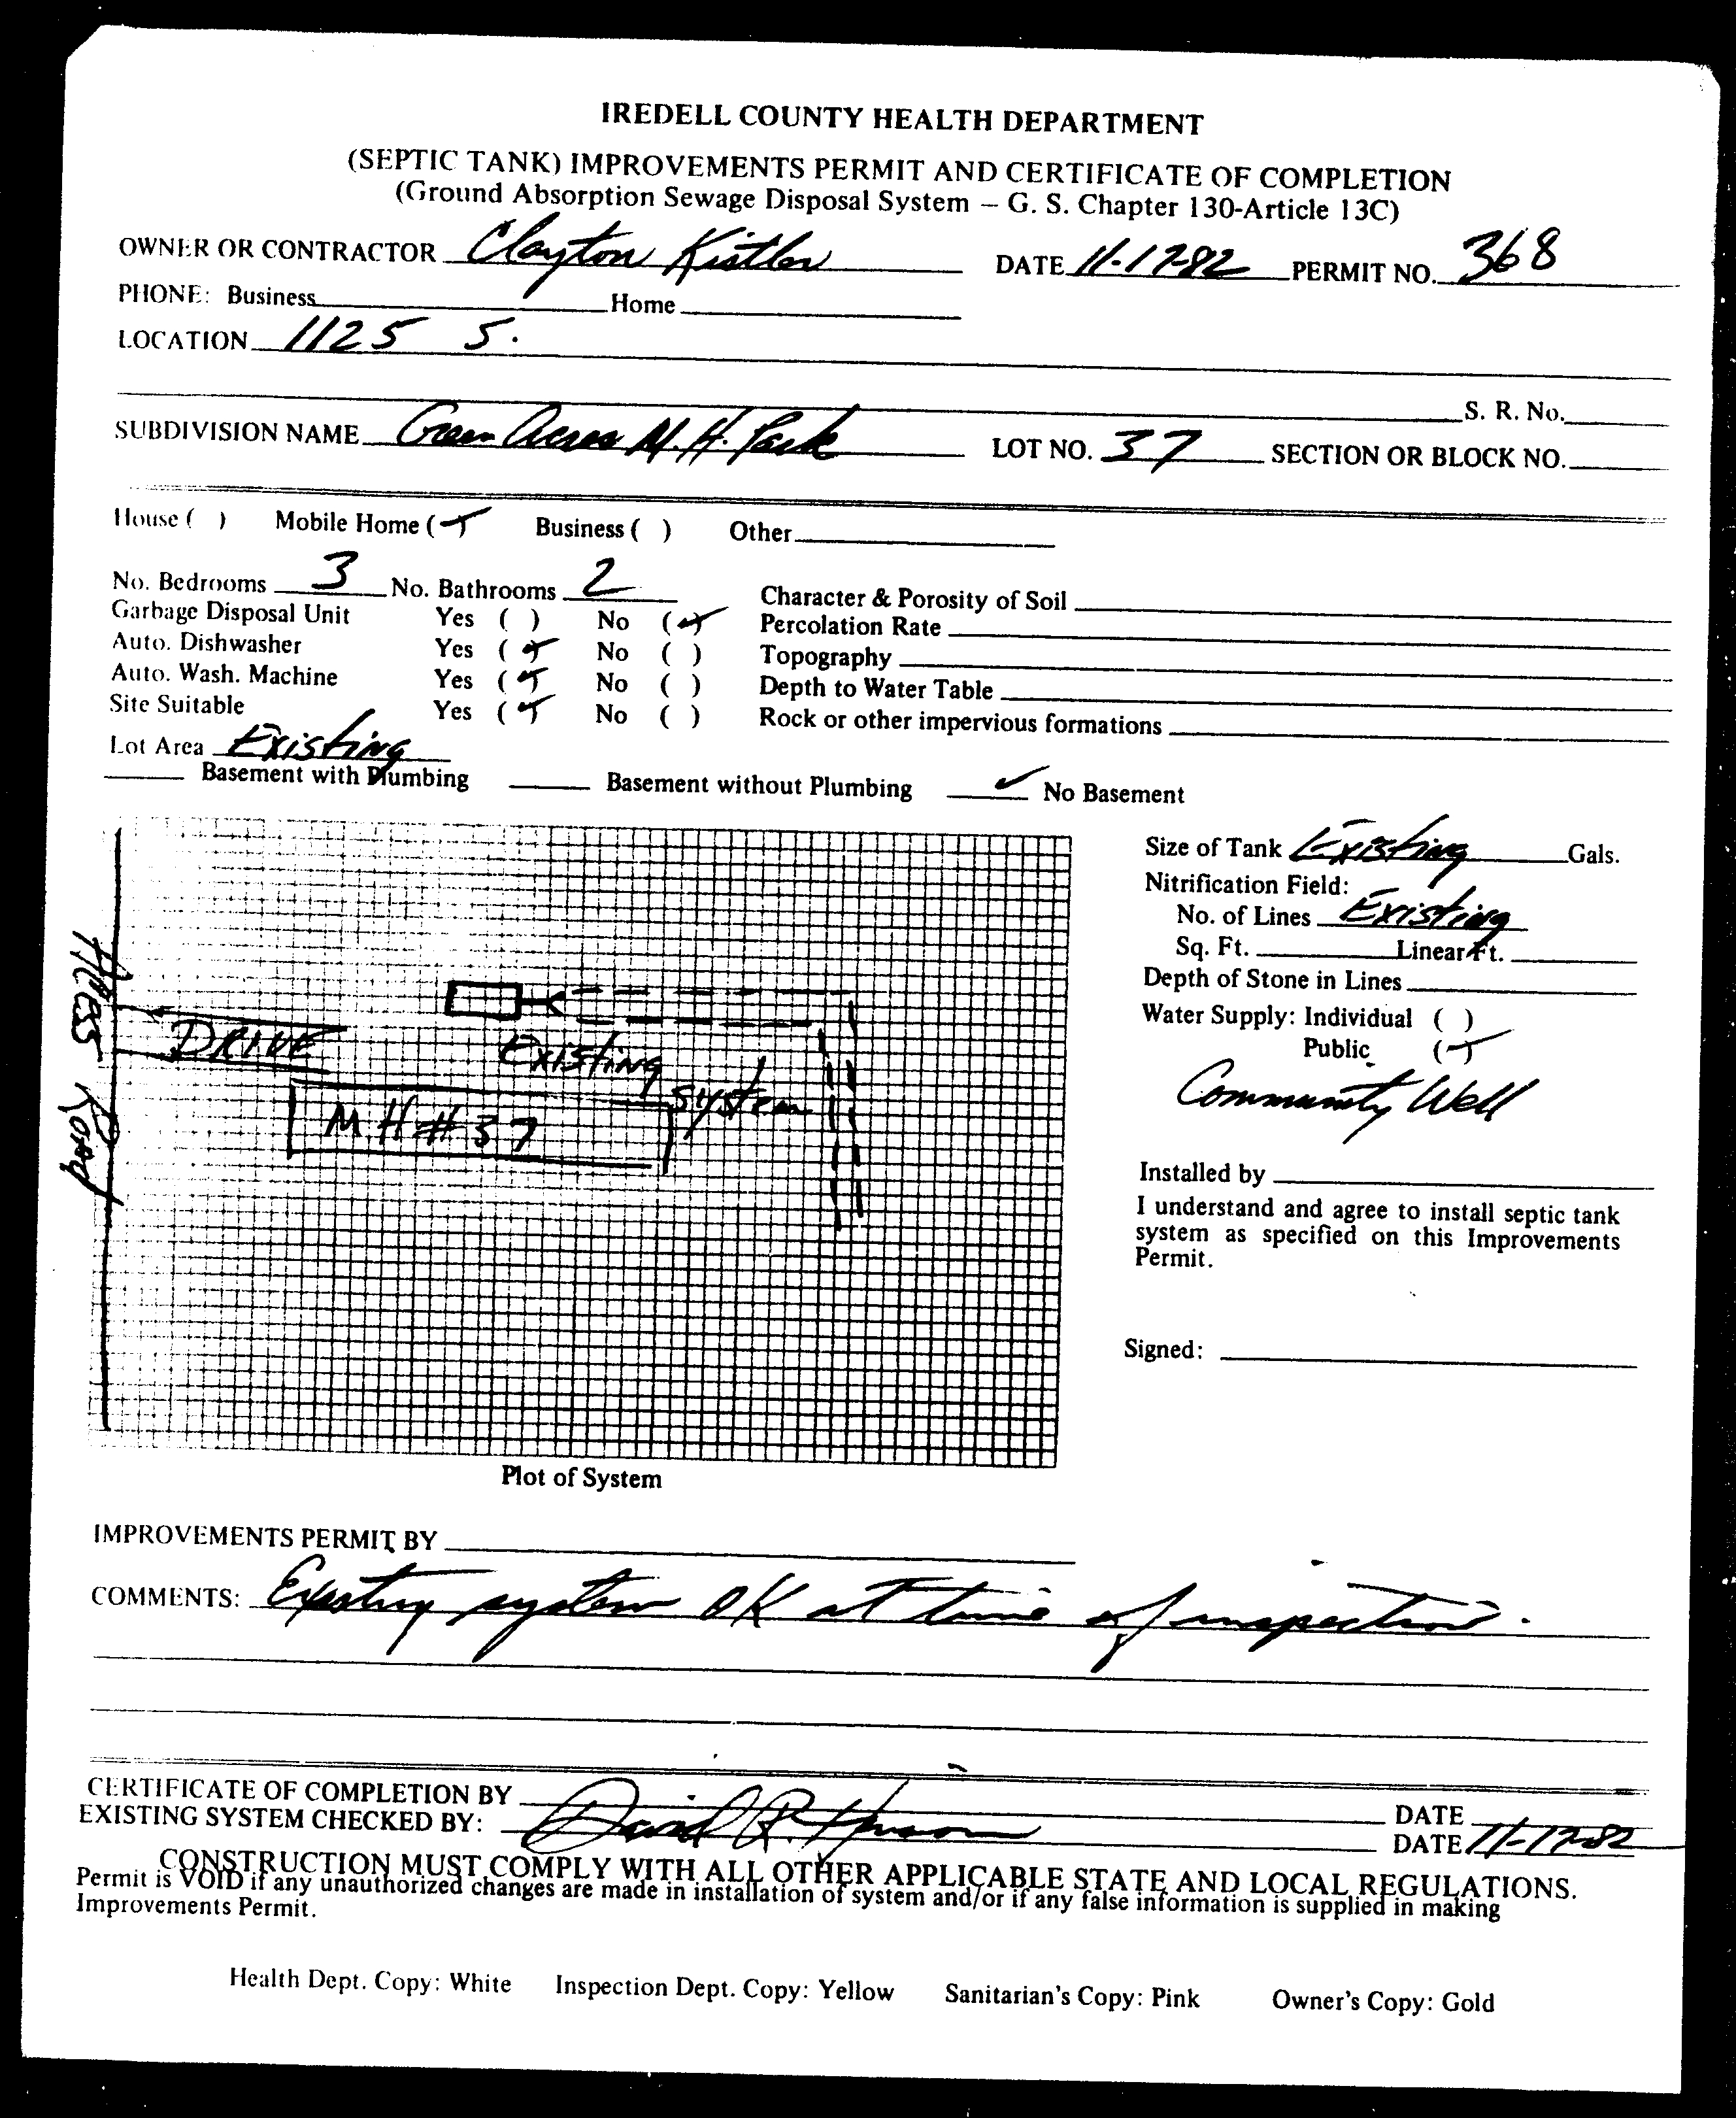 IREDELL COUNTY HEALTH DEPARTMENT
(SEPTIC TANK) IMPROVEMENTS PERMIT AND CERTIFICATE OF COMPLETION
(Ground Absorption Sewage Disposal System – G. S. Chapter 130-Article 13C)
OWNER OR CONTRACTOR Clayton Kistler DATE 11-17-82 PERMIT NO. 368
PHONE: Business Home
LOCATION 1125 S.
S. R. No.
SUBDIVISION NAME Green Acres M. H. Park LOT NO. 37 SECTION OR BLOCK NO.
House ( ) Mobile Home (✓) Business ( ) Other
No. Bedrooms 3 No. Bathrooms 2 Character & Porosity of Soil
Garbage Disposal Unit Yes ( ) No (✓) Percolation Rate
Auto. Dishwasher Yes (✓) No ( ) Topography
Auto. Wash. Machine Yes (✓) No ( ) Depth to Water Table
Site Suitable Yes (✓) No ( ) Rock or other impervious formations
Lot Area Existing
Basement with Plumbing Basement without Plumbing ✓ No Basement
Size of Tank Existing Gals.
Nitrification Field:
No. of Lines Existing
Sq. Ft. Linear Ft.
Depth of Stone in Lines
Water Supply: Individual ( )
Public (✓)
Community Well
Installed by
I understand and agree to install septic tank
system as specified on this Improvements
Permit.
Signed:
Road
DRIVE
Existing
System
MH # 37
Plot of System
IMPROVEMENTS PERMIT BY
COMMENTS: Existing system OK at time of inspection.
CERTIFICATE OF COMPLETION BY DATE
EXISTING SYSTEM CHECKED BY: David R. DATE 11-17-82
CONSTRUCTION MUST COMPLY WITH ALL OTHER APPLICABLE STATE AND LOCAL REGULATIONS.
Permit is VOID if any unauthorized changes are made in installation of system and/or if any false information is supplied in making
Improvements Permit.
Health Dept. Copy: White Inspection Dept. Copy: Yellow Sanitarian's Copy: Pink Owner's Copy: Gold